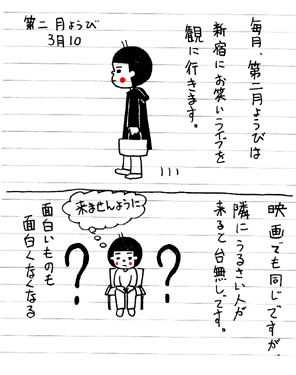 毎月、第二月ようびは
新宿にお笑いライブを
観に行きます。
第二月ようび
3月10
映画でも同じですが、
隣にうるさい人が
来ると台無しです。
来ませんように
?
?
面白いものも
面白くなくなる